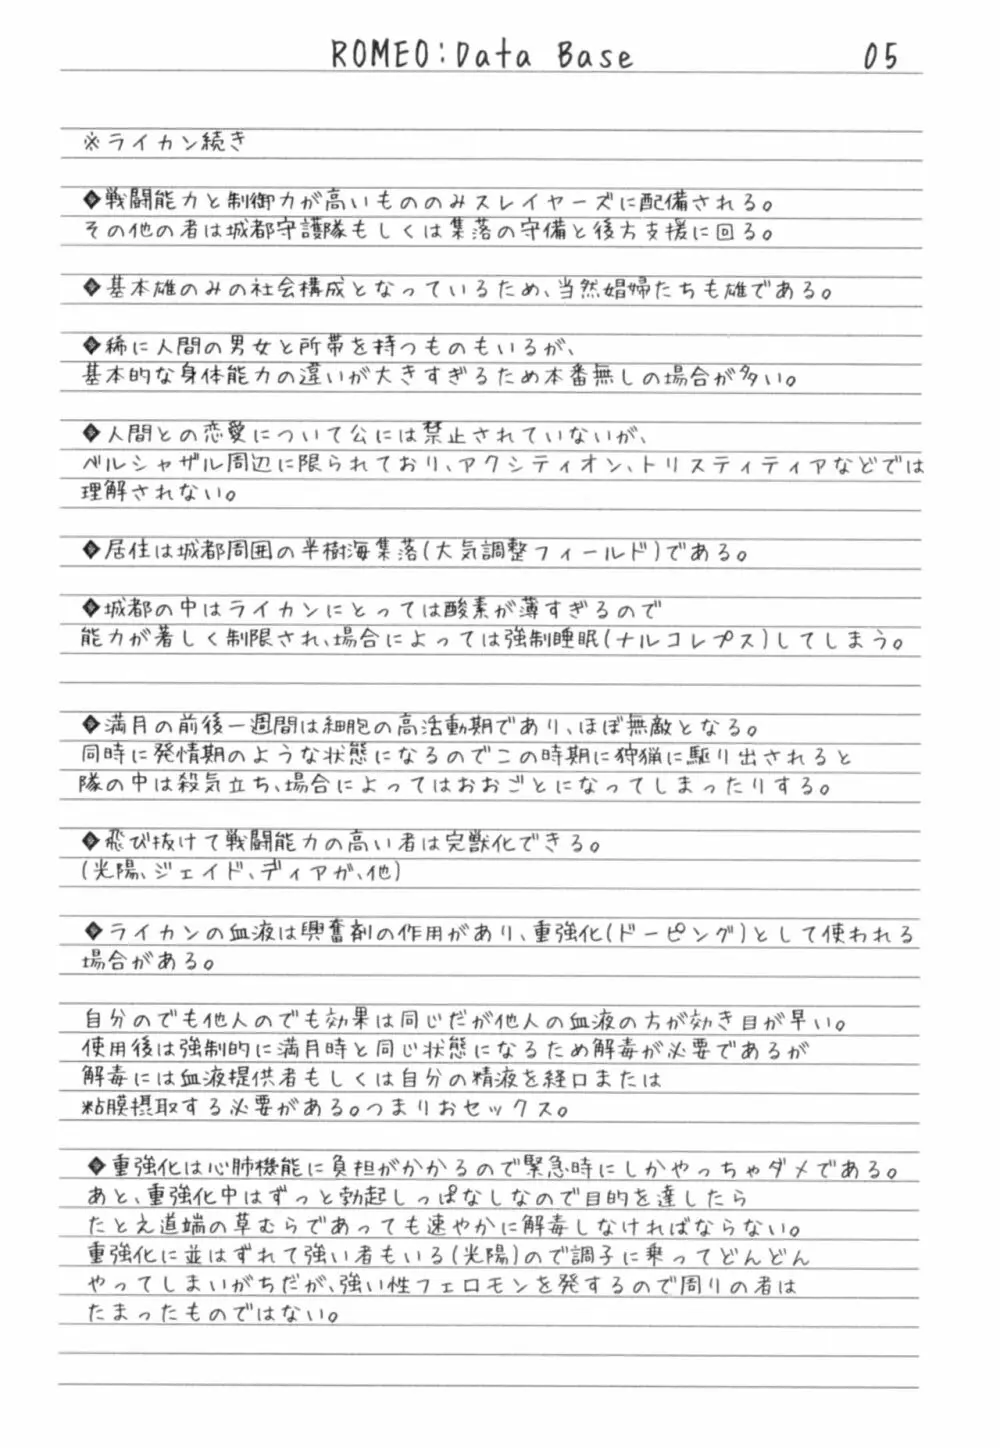 ROMEO:Data Base 05
※ライカン続き
◆戦闘能力と制御力が高いもののみスレイヤーズに配備される。
その他の者は城都守護隊もしくは集落の守備と後方支援に回る。
◆基本雄のみの社会構成となっているため、当然娼婦たちも雄である。
◆稀に人間の男女と所帯を持つものもいるが、
基本的な身体能力の違いが大きすぎるため本番無しの場合が多い。
◆人間との恋愛について公には禁止されていないが、
ベルシャザル周辺に限られており、アクシティオン、トリスティティアなどでは
理解されない。
◆居住は城都周囲の半樹海集落(大気調整フィールド)である。
◆城都の中はライカンにとっては酸素が薄すぎるので
能力が著しく制限され、場合によっては強制睡眠(ナルコレプス)してしまう。
◆満月の前後一週間は細胞の高活動期であり、ほぼ無敵となる。
同時に発情期のような状態になるのでこの時期に狩猟に駆り出されると
隊の中は殺気立ち、場合によってはおおごとになってしまったりする。
◆飛び抜けて戦闘能力の高い者は完獣化できる。
(光陽、ジェイド、ディアガ、他)
◆ライカンの血液は興奮剤の作用があり、重強化(ドーピング)として使われる
場合がある。
自分のでも他人のでも効果は同じだが他人の血液の方が効き目が早い。
使用後は強制的に満月時と同じ状態になるため解毒が必要であるが
解毒には血液提供者もしくは自分の精液を経口または
粘膜摂取する必要がある。つまりおセックス。
◆重強化は心肺機能に負担がかかるので緊急時にしかやっちゃダメである。
あと、重強化中はずっと勃起しっぱなしなので目的を達したら
たとえ道端の草むらであっても速やかに解毒しなければならない。
重強化に並はずれて強い者もいる(光陽)ので調子に乗ってどんどん
やってしまいがちだが、強い性フェロモンを発するので周りの者は
たまったものではない。